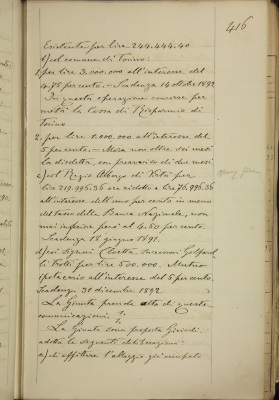 416
Esistente per lire 244.444.40
b) col comune di Torino:
1. per lire 3.000.000 all'interesse del
4.75 per cento. - Scadenza 14 ottobre 1892
In questa operazione concorre per
metà la Cassa di Risparmio di
Torino
2. per lire 1.000.000 all'interesse del
5 per cento. - Mora non oltre sei mesi
la disdetta, con preavviso di due mesi
c) col Regio Albergo di Virtù per
lire 219.996.36 ora ridotto a lire 76.995.36
all'interesse dell'uno per cento in meno
del tasso della Banca Nazionale, non
mai inferiore però al 4.50 per cento.
Scadenza 18 giugno 1891.
d) coi Signori
e Trotti per lire 500.000. Mutuo
ipotecario all'interesse del 5 per cento
Scadenza 31 dicembre 1892.
La Giunta prende atto di queste
comunicazioni.
La Giunta sura proposta
adotta le seguenti deliberazioni:
a) di affittare l'alloggio già occupato